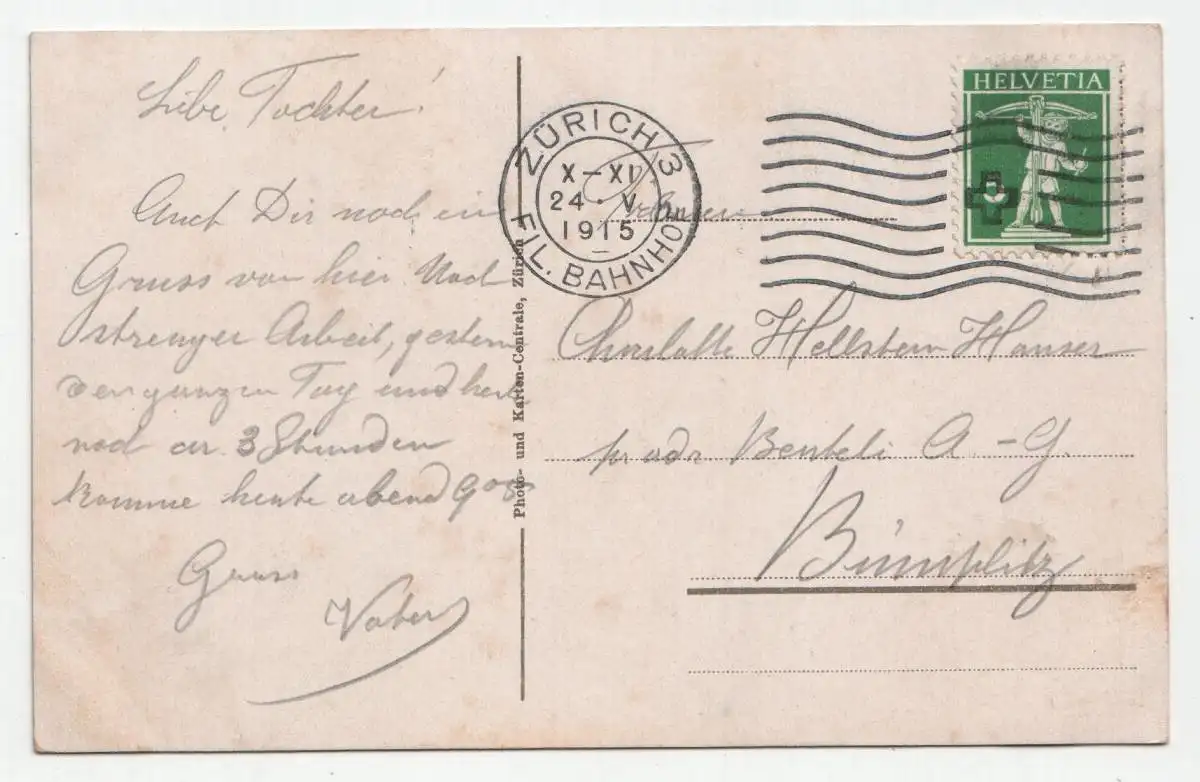 Liebe Tochter!
Auch Dir noch ein
Gruss von hier Nach
strenger Arbeit, gestern
den ganzen Tag und heute
noch ca. 3 Stunden
komme heute abend 9
Gruss
Vater
Photo- und Karten-Centrale, Zürich
ZÜRICH 3
X–XI
24. V.
1915
FIL. BAHNHOF
HELVETIA
5
Fräulein
Charlotte Hellstern Hauser
pr adr Benteli A-G.
Bümplitz